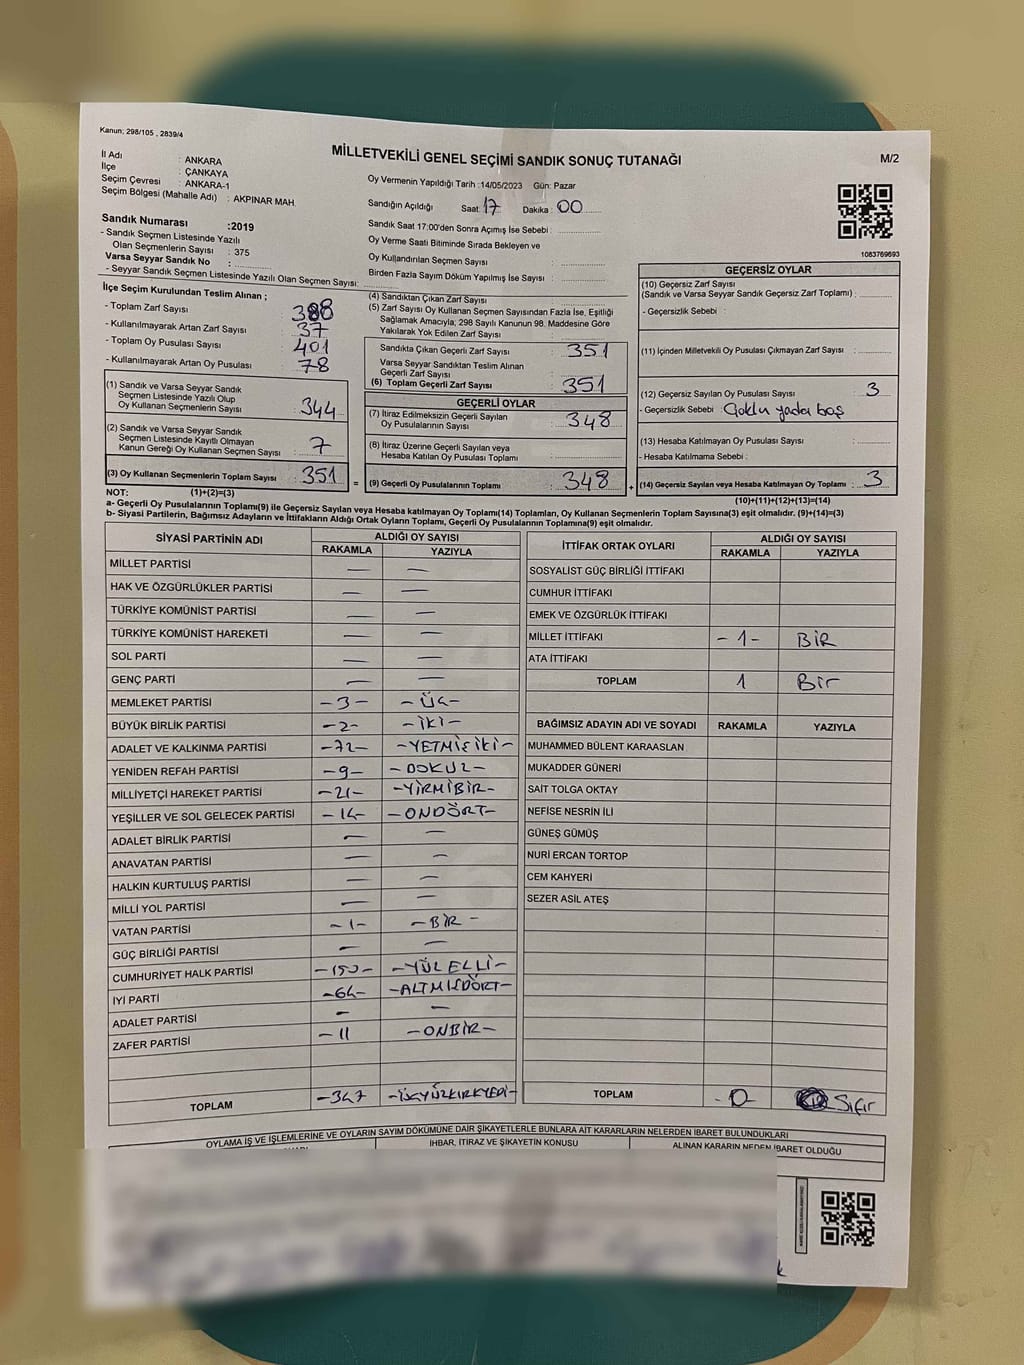 Kanun; 298/105 , 2839/4
MİLLETVEKİLİ GENEL SEÇİMİ SANDIK SONUÇ TUTANAĞI
M/2
İl Adı : ANKARA
İlçe : ÇANKAYA
Seçim Çevresi : ANKARA-1
Seçim Bölgesi (Mahalle Adı) : AKPINAR MAH.
Oy Vermenin Yapıldığı Tarih :14/05/2023 Gün: Pazar
Sandığın Açıldığı Saat: 17 Dakika : 00
Sandık Numarası :2019
- Sandık Seçmen Listesinde Yazılı
Olan Seçmenlerin Sayısı : 375
Varsa Seyyar Sandık No :
- Seyyar Sandık Seçmen Listesinde Yazılı Olan Seçmen Sayısı:
Sandık Saat 17:00'den Sonra Açımış İse Sebebi :
Oy Verme Saati Bitiminde Sırada Bekleyen ve
Oy Kullandırılan Seçmen Sayısı :
Birden Fazla Sayım Döküm Yapılmış İse Sayısı :
1083769693
İlçe Seçim Kurulundan Teslim Alınan ;
- Toplam Zarf Sayısı : 388
- Kullanılmayarak Artan Zarf Sayısı : 37
- Toplam Oy Pusulası Sayısı : 401
- Kullanılmayarak Artan Oy Pusulası : 78
(1) Sandık ve Varsa Seyyar Sandık
Seçmen Listesinde Yazılı Olup
Oy Kullanan Seçmenlerin Sayısı : 344
(2) Sandık ve Varsa Seyyar Sandık
Seçmen Listesinde Kayıtlı Olmayan
Kanun Gereği Oy Kullanan Seçmen Sayısı : 7
(3) Oy Kullanan Seçmenlerin Toplam Sayısı : 351
(4) Sandıktan Çıkan Zarf Sayısı :
(5) Zarf Sayısı Oy Kullanan Seçmen Sayısından Fazla İse, Eşitliği
Sağlamak Amacıyla; 298 Sayılı Kanunun 98. Maddesine Göre
Yakılarak Yok Edilen Zarf Sayısı :
Sandıkta Çıkan Geçerli Zarf Sayısı : 351
Varsa Seyyar Sandıktan Teslim Alınan
Geçerli Zarf Sayısı :
(6) Toplam Geçerli Zarf Sayısı : 351
GEÇERLİ OYLAR
(7) İtiraz Edilmeksizin Geçerli Sayılan
Oy Pusulalarının Sayısı : 348
(8) İtiraz Üzerine Geçerli Sayılan veya
Hesaba Katılan Oy Pusulası Toplamı :
= (9) Geçerli Oy Pusulalarının Toplamı : 348 +
GEÇERSİZ OYLAR
(10) Geçersiz Zarf Sayısı
(Sandık ve Varsa Seyyar Sandık Geçersiz Zarf Toplamı) :
- Geçersizlik Sebebi :
(11) İçinden Milletvekili Oy Pusulası Çıkmayan Zarf Sayısı :
(12) Geçersiz Sayılan Oy Pusulası Sayısı : 3
- Geçersizlik Sebebi : Çoklu yada boş
(13) Hesaba Katılmayan Oy Pusulası Sayısı :
- Hesaba Katılmama Sebebi :
(14) Geçersiz Sayılan veya Hesaba Katılmayan Oy Toplamı : 3
NOT: (1)+(2)=(3) (10)+(11)+(12)+(13)=(14)
a- Geçerli Oy Pusulalarının Toplamı(9) ile Geçersiz Sayılan veya Hesaba katılmayan Oy Toplamı(14) Toplamları, Oy Kullanan Seçmenlerin Toplam Sayısına(3) eşit olmalıdır. (9)+(14)=(3)
b- Siyasi Partilerin, Bağımsız Adayların ve İttifakların Aldığı Ortak Oyların Toplamı, Geçerli Oy Pusulalarının Toplamına(9) eşit olmalıdır.
SİYASİ PARTİNİN ADI ALDIĞI OY SAYISI
RAKAMLA YAZIYLA
MİLLET PARTİSİ — —
HAK VE ÖZGÜRLÜKLER PARTİSİ — —
TÜRKİYE KOMÜNİST PARTİSİ — —
TÜRKİYE KOMÜNİST HAREKETİ — —
SOL PARTİ — —
GENÇ PARTİ — —
MEMLEKET PARTİSİ -3- -ÜÇ-
BÜYÜK BİRLİK PARTİSİ -2- -İKİ-
ADALET VE KALKINMA PARTİSİ -72- -YETMİŞİKİ-
YENİDEN REFAH PARTİSİ -9- -DOKUZ-
MİLLİYETÇİ HAREKET PARTİSİ -21- -YİRMİBİR-
YEŞİLLER VE SOL GELECEK PARTİSİ -14- -ONDÖRT-
ADALET BİRLİK PARTİSİ — —
ANAVATAN PARTİSİ — —
HALKIN KURTULUŞ PARTİSİ — —
MİLLİ YOL PARTİSİ — —
VATAN PARTİSİ -1- -BİR-
GÜÇ BİRLİĞİ PARTİSİ — —
CUMHURİYET HALK PARTİSİ -150- -YÜZELLİ-
İYİ PARTİ -64- -ALTMIŞDÖRT-
ADALET PARTİSİ — —
ZAFER PARTİSİ -11 -ONBİR-
TOPLAM -347 -ÜÇYÜZKIRKYEDİ-
İTTİFAK ORTAK OYLARI ALDIĞI OY SAYISI
RAKAMLA YAZIYLA
SOSYALİST GÜÇ BİRLİĞİ İTTİFAKI
CUMHUR İTTİFAKI
EMEK VE ÖZGÜRLÜK İTTİFAKI
MİLLET İTTİFAKI -1- BİR
ATA İTTİFAKI
TOPLAM 1 Bir
BAĞIMSIZ ADAYIN ADI VE SOYADI RAKAMLA YAZIYLA
MUHAMMED BÜLENT KARAASLAN
MUKADDER GÜNERİ
SAİT TOLGA OKTAY
NEFİSE NESRİN İLİ
GÜNEŞ GÜMÜŞ
NURİ ERCAN TORTOP
CEM KAHYERİ
SEZER ASİL ATEŞ
TOPLAM -0- Sıfır
OYLAMA İŞ VE İŞLEMLERİNE VE OYLARIN SAYIM DÖKÜMÜNE DAİR ŞİKAYETLERLE BUNLARA AİT KARARLARIN NELERDEN İBARET BULUNDUKLARI
İHBAR, İTİRAZ VE ŞİKAYETİN KONUSU ALINAN KARARIN NEDEN İBARET OLDUĞU